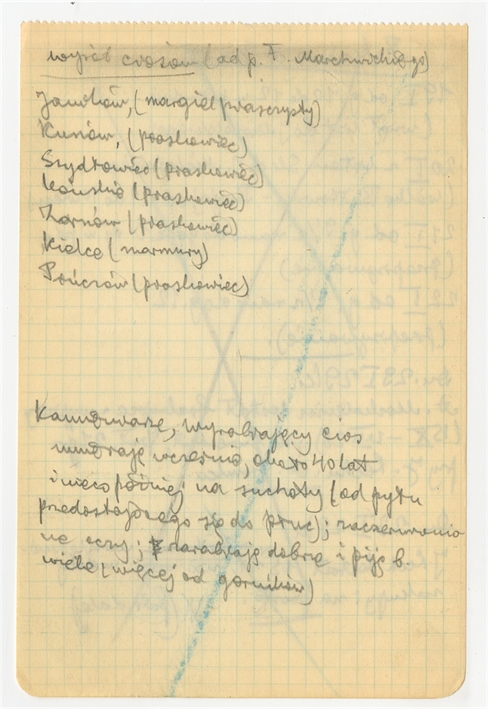 wyrób ciosów (od p. F. Marchwickiego)
Janików, (margiel piaszczysty)
Kunów, (piaskowiec)
Szydłowiec (piaskowiec)
Końskie (piaskowiec)
Żarnów (piaskowiec)
Kielce (marmury)
Pińczów (piaskowiec)
Kamieniarze, wyrabiający cios
umierają wcześnie, około 40 lat
i nieco później na suchoty (od pyłu
przedostającego się do płuc); zaczerwienio
ne oczy; zarabiają dobrze i piją b.
wiele (więcej od górników)